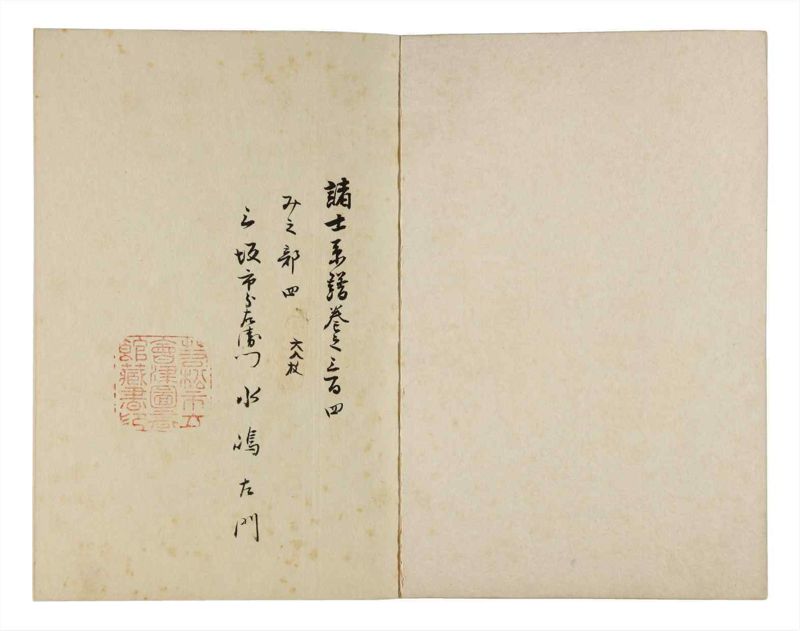 諸士系譜巻之三百四
み之部四
六八枚
三坂市郎左衛門 水嶋左門
若松市立
會津圖書
館藏書印